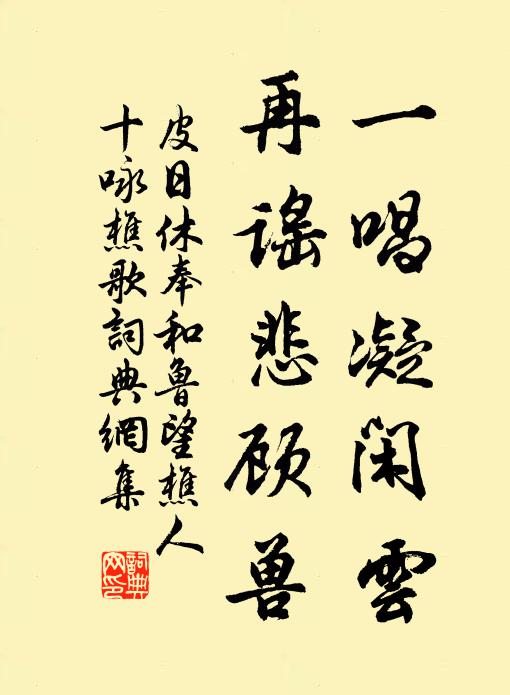 一唱凝闲雲
再謠悲顾兽
皮日休奉和鲁望樵人
十咏樵歌詞典網集
詞典网印